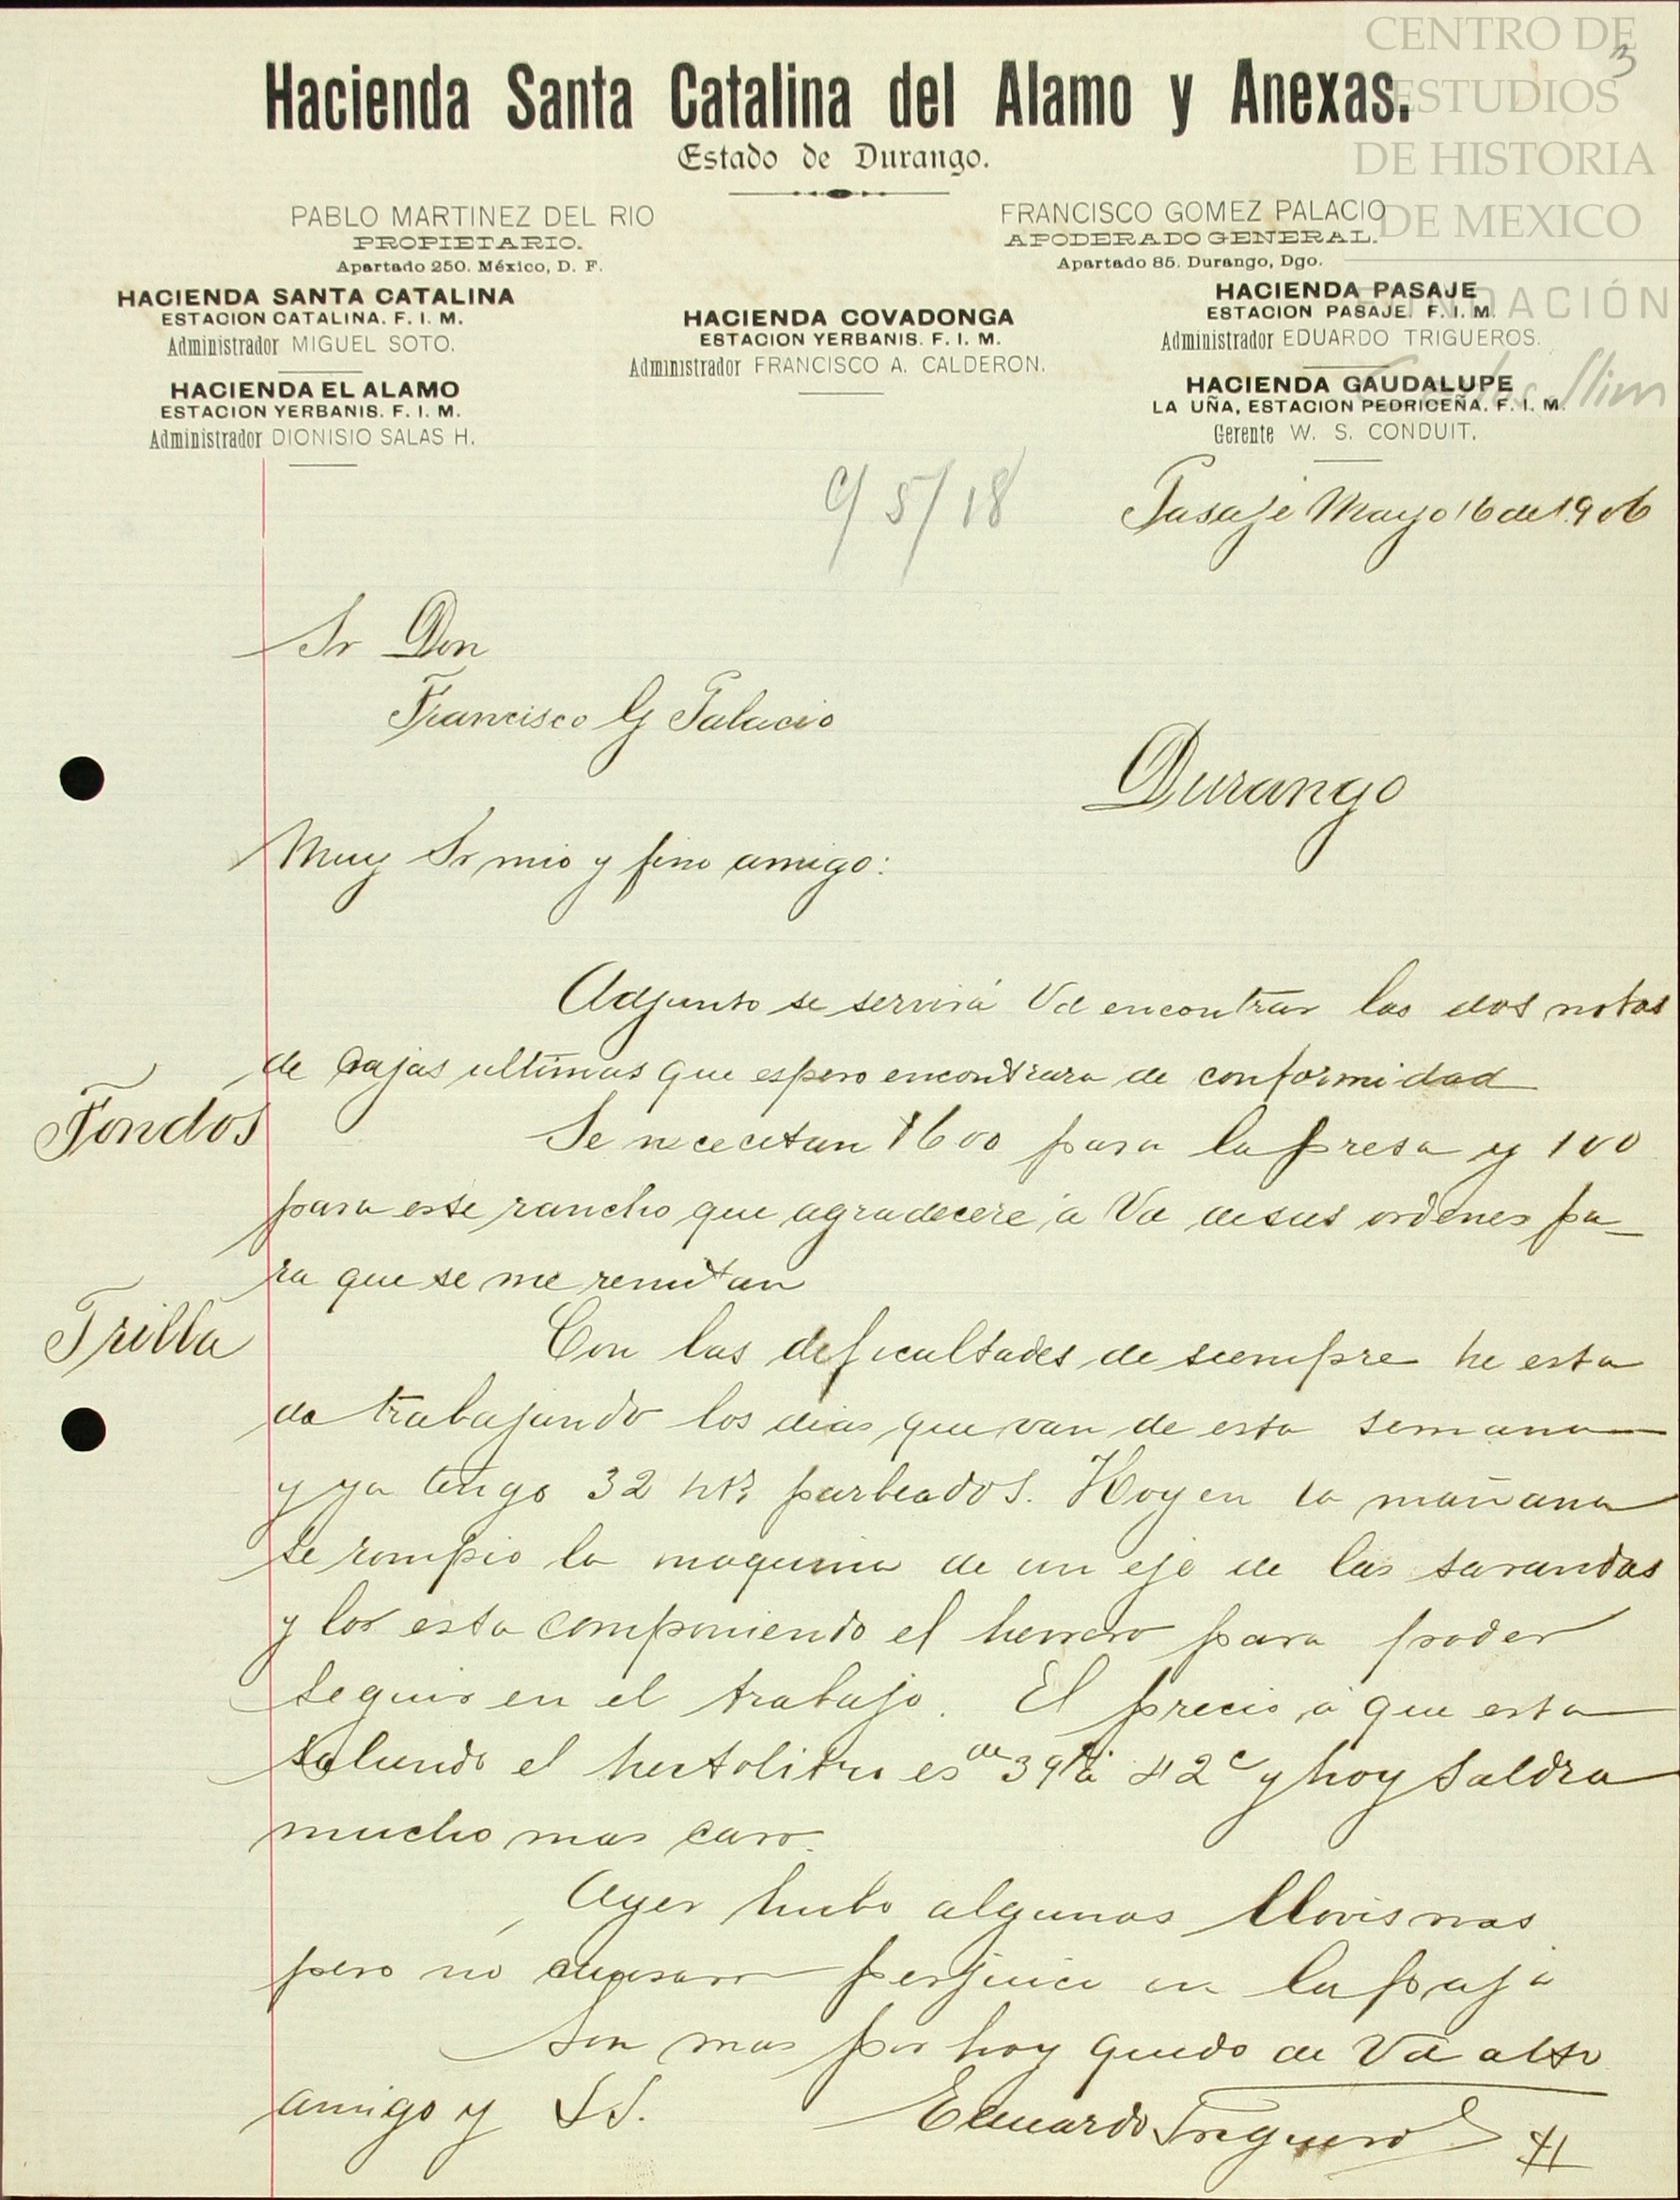 CENTRO DE
ESTUDIOS
DE HISTORIA
DE MEXICO
FUNDACIÓN
Carlos Slim
3
Hacienda Santa Catalina del Alamo y Anexas.
Estado de Durango.
PABLO MARTINEZ DEL RIO
PROPIETARIO.
Apartado 250. México, D. F.
FRANCISCO GOMEZ PALACIO
APODERADO GENERAL.
Apartado 85. Durango, Dgo.
HACIENDA SANTA CATALINA
ESTACION CATALINA. F. I. M.
Administrador MIGUEL SOTO.
HACIENDA EL ALAMO
ESTACION YERBANIS. F. I. M.
Administrador DIONISIO SALAS H.
HACIENDA COVADONGA
ESTACION YERBANIS. F. I. M.
Administrador FRANCISCO A. CALDERON.
HACIENDA PASAJE
ESTACION PASAJE. F. I. M.
Administrador EDUARDO TRIGUEROS.
HACIENDA GAUDALUPE
LA UÑA, ESTACION PEDRICEÑA. F. I. M.
Gerente W. S. CONDUIT.
C/ 5/18
Pasaje Mayo 16 de 1906
Sr Don
Francisco G Palacio
Durango
Muy Sr mio y fino amigo:
Adjunto se servirá Vd encontrar las dos notas
de rayas ultimas que espero encontrara de conformidad
Fondos
Se nececitan 1600 para la presa y 100
para este rancho que agradeceré á Vd de sus ordenes pa-
ra que se me remitan
Trilla
Con las deficultades de siempre he esta
do trabajando los dias que van de esta semana
y ya tengo 32 hts parbeados. Hoy en la mañana
se rompio la maquina de un eje de las sarandas
y los esta componiendo el herrero para poder
seguir en el trabajo. El precio á que esta
saliendo el hectolitro es de 39 á 42c y hoy saldra
mucho mas caro.
Ayer hubo algunas llovisnas
pero no causaron perjuicio en la paja
Son mas por hoy quedo de Vd atto
amigo y SS.
Eduardo Trigueros